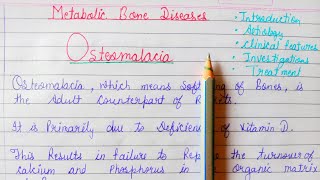 Metabolic Bone Diseases
• Introduction
• Aetiology
• Clinical Features
• Investigations
• Treatment
Osteomalacia
Osteomalacia, which means Sof of Bones, is
the Adult Counterpart of R ts.
It is Primarily due to Deficien of Vitamin D.
This Results in Failure to Rep the turnover of
calcium and Phosphorus in organic matrix